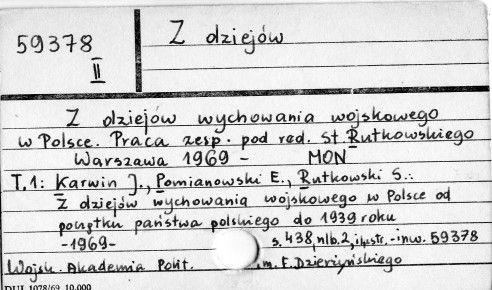 59378
II
Z dziejów
Z dziejów wychowania wojskowego
w Polsce. Praca zesp. pod red. St. Rutkowskiego
Warszawa 1969 - MON
T.1: Karwin J., Pomianowski E., Rutkowski S.:
Z dziejów wychowania wojskowego w Polsce od
początku państwa polskiego do 1939 roku
-1969- s. 438, nlb. 2, ilustr. - inw. 59378
Wojsk. Akademia Polit. im. F. Dzierżyńskiego
DUJ 1078/69 10.000